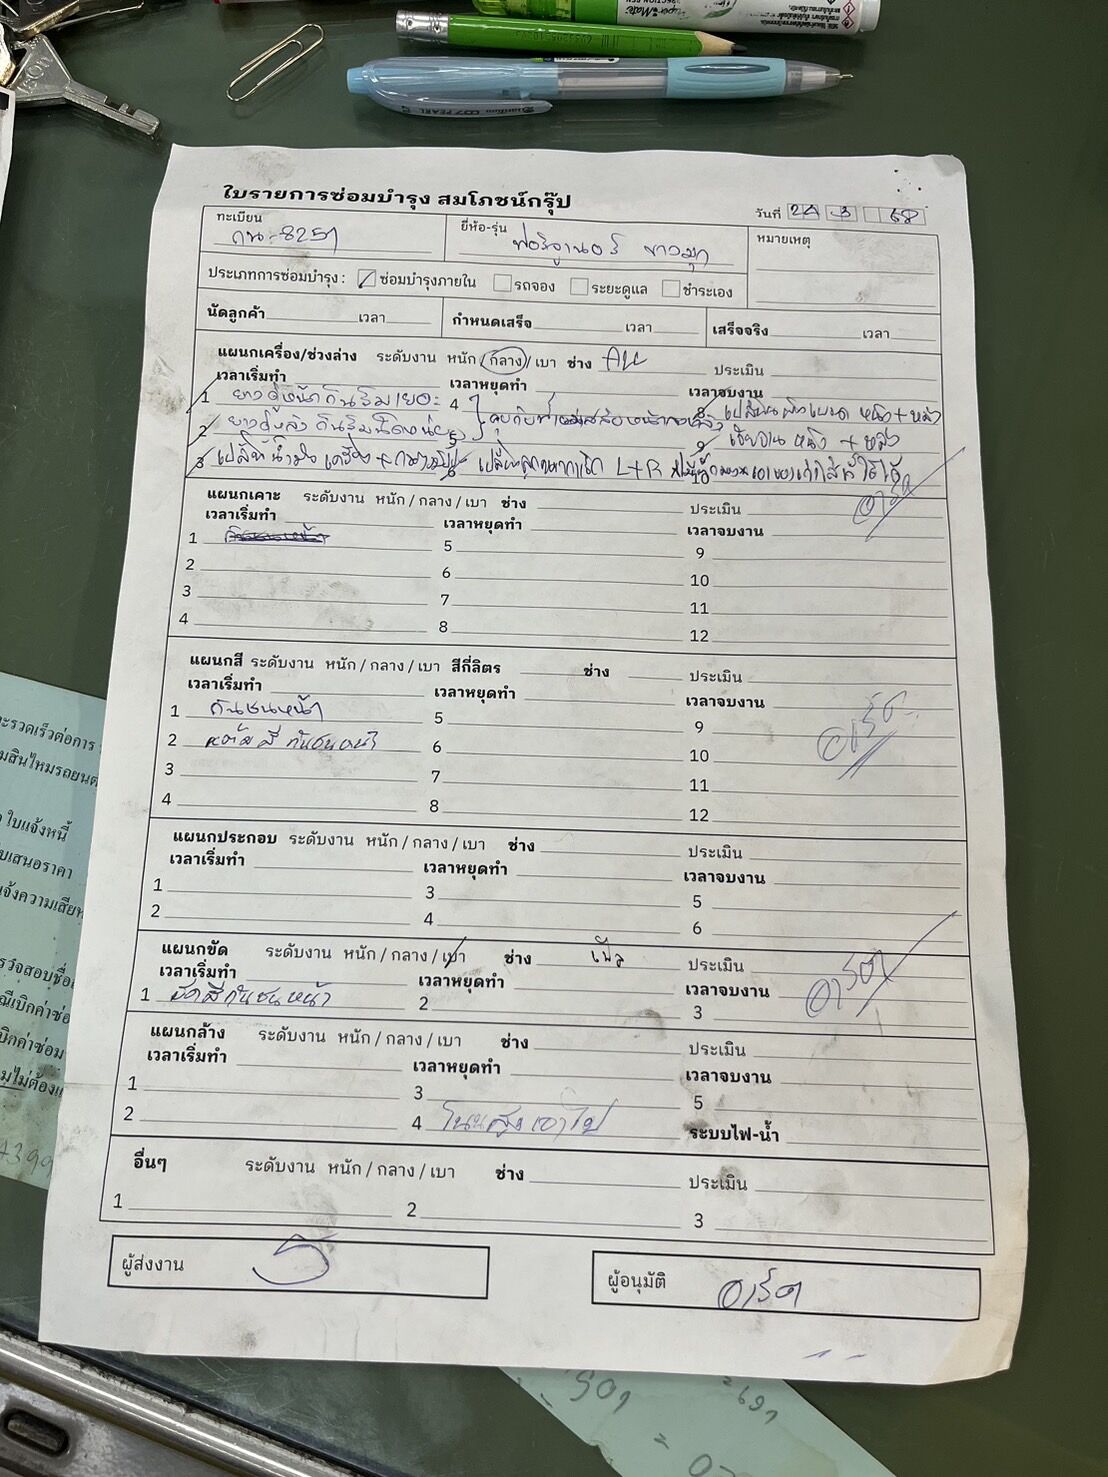 ใบรายการซ่อมบำรุง สมโภชน์กรุ๊ป
วันที่ 24 3 68
ทะเบียน กน-8257
ยี่ห้อ-รุ่น ฟอร์จูนเนอร์ ขาวมุก
หมายเหตุ
ประเภทการซ่อมบำรุง : ซ่อมบำรุงภายใน รถจอง ระยะดูแล ชำระเอง
นัดลูกค้า เวลา กำหนดเสร็จ เวลา เสร็จจริง เวลา
แผนกเครื่อง/ช่วงล่าง ระดับงาน หนัก / กลาง / เบา ช่าง ประเมิน
เวลาเริ่มทำ เวลาหยุดทำ เวลาจบงาน
1 ยางคู่หน้ากินริมเยอะ 4
2 ยางคู่หลังกินริมนิดหน่อย เจียจาน หน้า + หลัง
3 L+R 10
แผนกเคาะ ระดับงาน หนัก / กลาง / เบา ช่าง ประเมิน
เวลาเริ่มทำ เวลาหยุดทำ เวลาจบงาน
1 5 9
2 6 10
3 7 11
4 8 12
แผนกสี ระดับงาน หนัก / กลาง / เบา สีกี่ลิตร ช่าง ประเมิน
เวลาเริ่มทำ เวลาหยุดทำ เวลาจบงาน
1 กันชนหน้า 5 9
2 แต้มสี กันชนหน้า 6 10
3 7 11
4 8 12
แผนกประกอบ ระดับงาน หนัก / กลาง / เบา ช่าง ประเมิน
เวลาเริ่มทำ เวลาหยุดทำ เวลาจบงาน
1 3 5
2 4 6
แผนกขัด ระดับงาน หนัก / กลาง / เบา ช่าง ประเมิน
เวลาเริ่มทำ เวลาหยุดทำ เวลาจบงาน
1 ขัดสีกันชนหน้า 2 3
แผนกล้าง ระดับงาน หนัก / กลาง / เบา ช่าง ประเมิน
เวลาเริ่มทำ เวลาหยุดทำ เวลาจบงาน
1 3 5
2 4 ระบบไฟ-น้ำ
อื่นๆ ระดับงาน หนัก / กลาง / เบา ช่าง ประเมิน
1 2 3
ผู้ส่งงาน
ผู้อนุมัติ อาร์ต